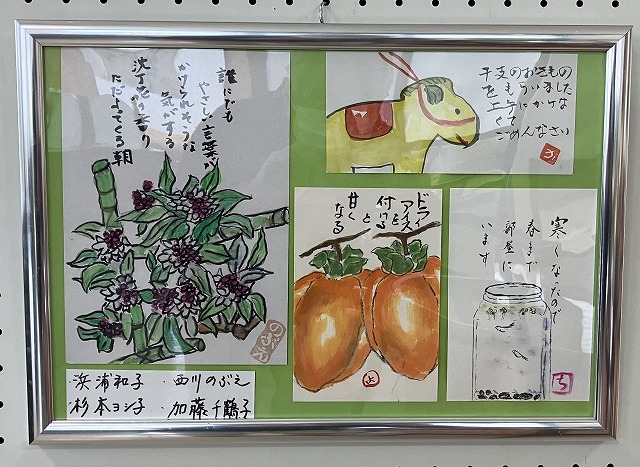 誰にでも
やさしい言葉が
かけられそうな
気がする
沈丁花の香り
ただよってくる朝
のぶえ
干支のおきもの
をもらいました
上手にかけな
くてごめんなさい
ドライ
アイスを
付けると
甘くなる
よ
寒くなったので
春まで
部屋に
います
ち
・浜浦和子 ・西川のぶえ
・杉本ヨシ子 ・加藤千鶴子